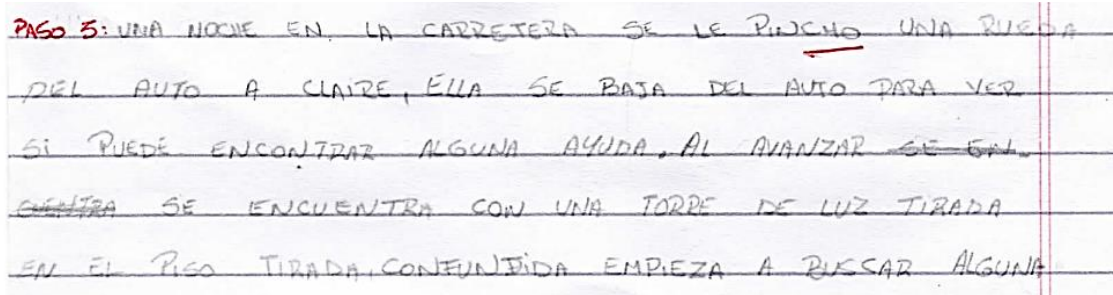 PASO 5: UNA NOCHE EN LA CARRETERA SE LE PINCHO UNA RUEDA
DEL AUTO A CLAIRE, ELLA SE BAJA DEL AUTO PARA VER
SI PUEDE ENCONTRAR ALGUNA AYUDA. AL AVANZAR SE EN
CUENTRA SE ENCUENTRA CON UNA TORRE DE LUZ TIRADA
EN EL PISO TIRADA, CONFUNDIDA EMPIEZA A BUSSAR ALGUNA